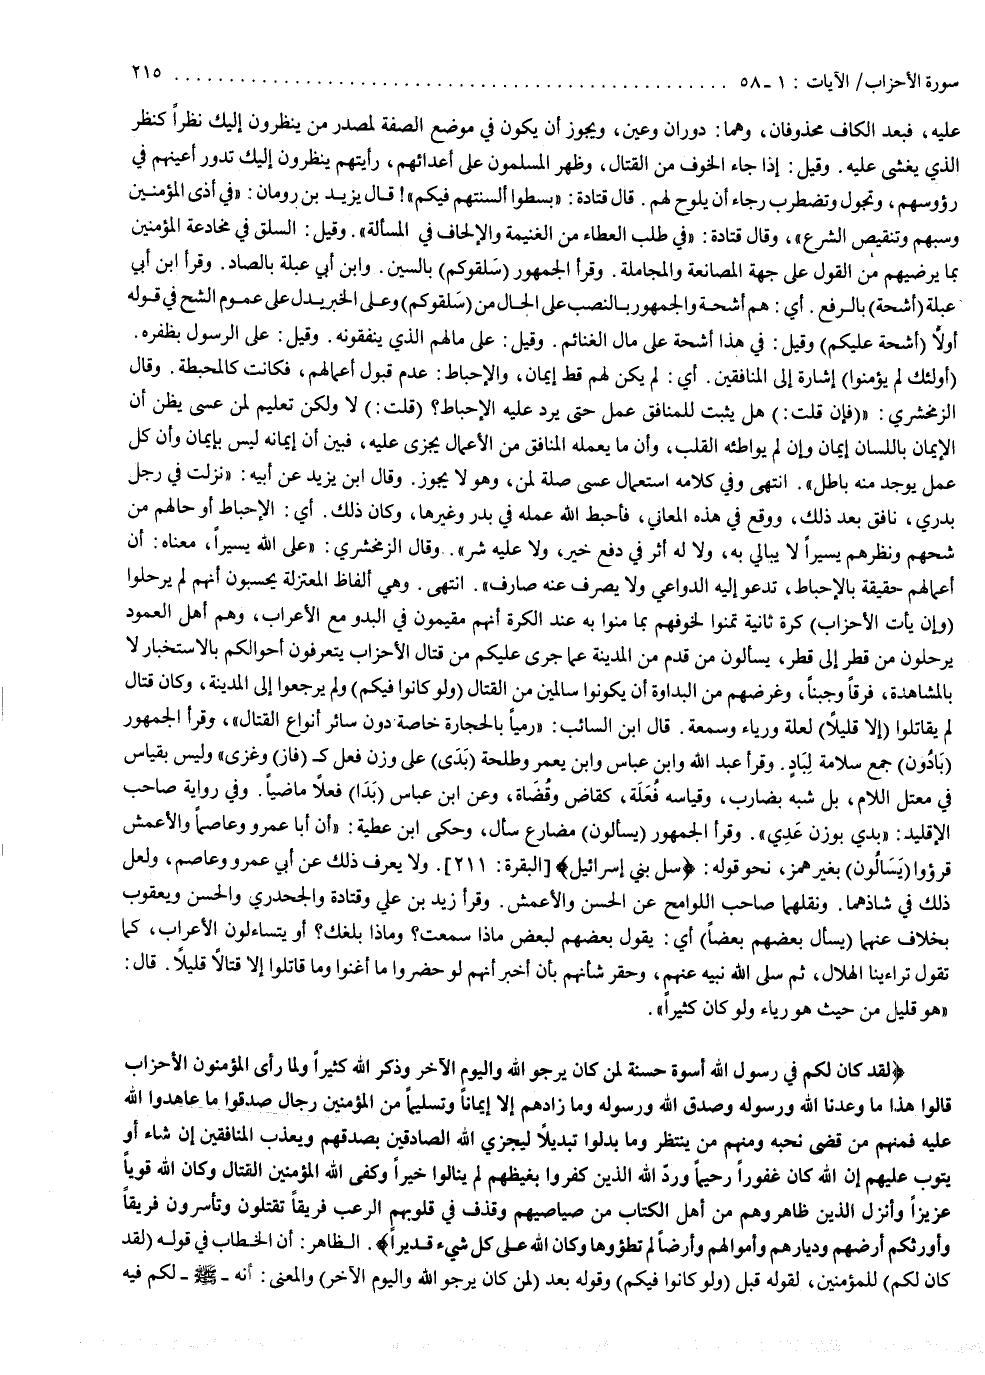 سورة الأحزاب/ الآيات : ١ ـ ٥٨ ................................................ ٢١٥
عليه، فبعد الكاف محذوفان، وهما: دوران وعين، ويجوز أن يكون في موضع الصفة لمصدر من ينظرون إليك نظراً كنظر
الذي يغشى عليه. وقيل: إذا جاء الخوف من القتال، وظهر المسلمون على أعدائهم، رأيتهم ينظرون إليك تدور أعينهم في
رؤوسهم، وتجول وتضطرب رجاء أن يلوح لهم. قال قتادة: «بسطوا ألسنتهم فيكم»! قال يزيد بن رومان: «في أذى المؤمنين
وسبهم وتنقيص الشرع»، وقال قتادة: «في طلب العطاء من الغنيمة والإلحاف في المسألة». وقيل: السلق في مخادعة المؤمنين
بما يرضيهم من القول على جهة المصانعة والمجاملة. وقرأ الجمهور (سَلقوكم) بالسين. وابن أبي عبلة بالصاد. وقرأ ابن أبي
عبلة (أشحة) بالرفع. أي: هم أشحة والجمهور بالنصب على الحال من (سَلقوكم) وعلى الخبر يدل على عموم الشح في قوله
أولاً (أشحة عليكم) وقيل: في هذا أشحة على مال الغنائم. وقيل: على مالهم الذي ينفقونه. وقيل: على الرسول بظفره.
(أولئك لم يؤمنوا) إشارة إلى المنافقين. أي: لم يكن لهم قط إيمان، والإحباط: عدم قبول أعمالهم، فكانت كالمحبطة. وقال
الزمخشري: «(فإن قلت:) هل يثبت للمنافق عمل حتى يرد عليه الإحباط؟ (قلت:) لا ولكن تعليم لمن عسى يظن أن
الإيمان باللسان إيمان وإن لم يواطئه القلب، وأن ما يعمله المنافق من الأعمال يجزى عليه، فبين أن إيمانه ليس بإيمان وأن كل
عمل يوجد منه باطل». انتهى وفي كلامه استعمال عسى صلة لمن، وهو لا يجوز. وقال ابن يزيد عن أبيه: «نزلت في رجل
بدري، نافق بعد ذلك، ووقع في هذه المعاني، فأحبط الله عمله في بدر وغيرها، وكان ذلك. أي: الإحباط أو حالهم من
شحهم ونظرهم يسيراً لا يبالي به، ولا له أثر في دفع خير، ولا عليه شر».. وقال الزمخشري: «على الله يسيراً، معناه: أن
أعمالهم حقيقة بالإحباط، تدعو إليه الدواعي ولا يصرف عنه صارف». انتهى. وهي ألفاظ المعتزلة يحسبون أنهم لم يرحلوا
(وإن يأت الأحزاب) كرة ثانية تمنوا لخوفهم بما منوا به عند الكرة أنهم مقيمون في البدو مع الأعراب، وهم أهل العمود
يرحلون من قطر إلى قطر، يسألون من قدم من المدينة عما جرى عليكم من قتال الأحزاب يتعرفون أحوالكم بالاستخبار لا
بالمشاهدة، فرقاً وجبناً، وغرضهم من البداوة أن يكونوا سالمين من القتال (ولو كانوا فيكم) ولم يرجعوا إلى المدينة، وكان قتال
لم يقاتلوا (إلا قليلاً) لعلة ورياء وسمعة. قال ابن السائب: «رمياً بالحجارة خاصة دون سائر أنواع القتال»، وقرأ الجمهور
(بَادُون) جمع سلامة لِبَادٍ. وقرأ عبد الله وابن عباس وابن يعمر وطلحة (بَدَى) على وزن فعل كـ (فاز) وغزى» وليس بقياس
في معتل اللام، بل شبه بضارب، وقياسه فُعَلَة، كقاض وقُضَاة، وعن ابن عباس (بَدَا) فعلاً ماضياً. وفي رواية صاحب
الإقليد: «بدي بوزن عَدِي». وقرأ الجمهور (يسألون) مضارع سأل، وحكى ابن عطية: «أن أبا عمرو وعاصماً والأعمش
قرؤوا (يَسَالُون) بغير همز، نحو قوله: ﴿سل بني إسرائيل﴾ [البقرة: ٢١١]. ولا يعرف ذلك عن أبي عمرو وعاصم، ولعل
ذلك في شاذهما. ونقلهما صاحب اللوامح عن الحسن والأعمش. وقرأ زيد بن علي وقتادة والجحدري والحسن ويعقوب
بخلاف عنهما (يسأل بعضهم بعضاً) أي: يقول بعضهم لبعض ماذا سمعت؟ وماذا بلغك؟ أو يتساءلون الأعراب، كما
تقول تراءينا الهلال، ثم سلى الله نبيه عنهم، وحقر شأنهم بأن أخبر أنهم لو حضروا ما أغنوا وما قاتلوا إلا قتالاً قليلاً. قال:
«هو قليل من حيث هو رياء ولو كان كثيراً».
﴿لقد كان لكم في رسول الله أسوة حسنة لمن كان يرجو الله واليوم الآخر وذكر الله كثيراً ولما رأى المؤمنون الأحزاب
قالوا هذا ما وعدنا الله ورسوله وصدق الله ورسوله وما زادهم إلا إيماناً وتسليماً من المؤمنين رجال صدقوا ما عاهدوا الله
عليه فمنهم من قضى نحبه ومنهم من ينتظر وما بدلوا تبديلاً ليجزي الله الصادقين بصدقهم ويعذب المنافقين إن شاء أو
يتوب عليهم إن الله كان غفوراً رحيماً وردّ الله الذين كفروا بغيظهم لم ينالوا خيراً وكفى الله المؤمنين القتال وكان الله قوياً
عزيزاً وأنزل الذين ظاهروهم من أهل الكتاب من صياصيهم وقذف في قلوبهم الرعب فريقاً تقتلون وتأسرون فريقاً
وأورثكم أرضهم وديارهم وأموالهم وأرضاً لم تطؤوها وكان الله على كل شيء قديراً﴾. الظاهر: أن الخطاب في قوله (لقد
كان لكم) للمؤمنين، لقوله قبل (ولو كانوا فيكم) وقوله بعد (لمن كان يرجو الله واليوم الآخر) والمعنى: أنه ـ ﷺ ـ لكم فيه